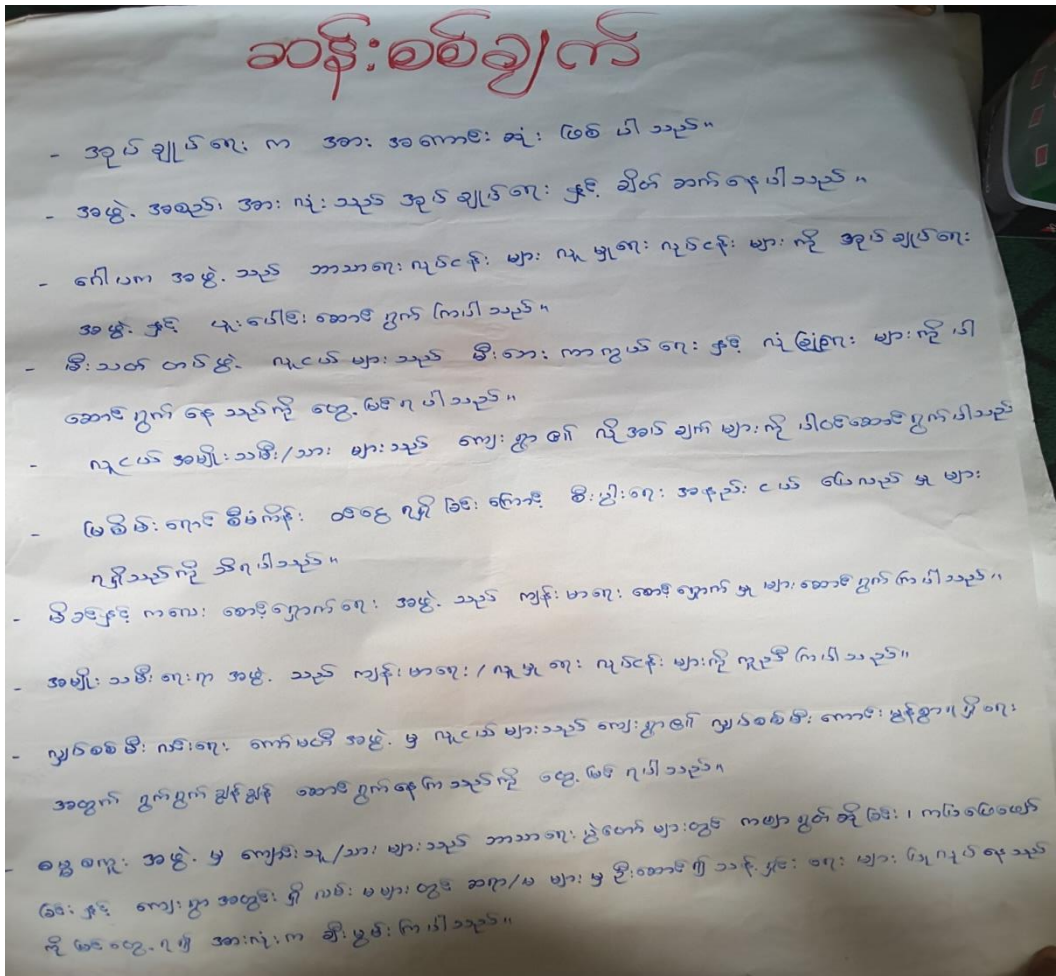 ဆန်းစစ်ချက်
- အုပ်ချုပ်ရေး က အား အကောင်း ဆုံး ဖြစ် ပါ သည်။
- အဖွဲ့. အစည်း အား လုံး သည် အုပ်ချုပ်ရေး နှင့် ချိတ် ဆက် နေ ပါ သည်။
- ဂေါပက အဖွဲ့. သည် ဘာသာရေး လုပ်ငန်း များ လူ မှုရေး လုပ်ငန်း များ ကို အုပ်ချုပ်ရေး
အဖွဲ့. နှင့် ပူးပေါင်း ဆောင် ရွက် ကြပါ သည်။
- မီးသတ် တပ်ဖွဲ့. လူငယ် များ သည် မီးဘေး ကာကွယ် ရေး နှင့် လုံခြုံရေး များ ကို ပါ
ဆောင် ရွက် နေ သည် ကို တွေ့. မြင် ရ ပါ သည်။
- လူငယ် အမျိုး သမီး/သား များ သည် ကျေး ရွာ ၏ လိုအပ် ချက် များ ကို ပါဝင် ဆောင် ရွက် ပါ သည်
- မြစိမ်း ရောင် စီမံကိန်း ငွေ ရရှိ ခြင်း ကြောင့် စီးပွါးရေး အနည်း ငယ် ပြေလည် မှု များ
ရရှိသည် ကို သိရ ပါ သည်။
- မိခင်နှင့် ကလေး စောင့်ရှောက်ရေး အဖွဲ့. သည် ကျန်း မာရေး စောင့် ရှောက် မှု များ ဆောင် ရွက် ကြ ပါ သည်။
- အမျိုး သမီး ရေးရာ အဖွဲ့. သည် ကျန်း မာရေး / လူ မှု ရေး လုပ်ငန်း များ ကို ကူညီ ကြပါ သည်။
- လျှပ်စစ် မီး လင်းရေး ကော်မတီ အဖွဲ့. မှ လူငယ် များ သည် ကျေး ရွာ ၏ လျှပ်စစ် မီး ကောင်း မွန်စွာ ရ ရှိ ရေး
အတွက် ရွက်ရွက် ချွန်ချွန် ဆောင် ရွက် နေ ကြ သည် ကို တွေ့. မြင် ရ ပါ သည်။
- ဓမ္မစကူး အဖွဲ့. မှ ကျောင်း သူ/သား များ သည် ဘာသာရေး ပွဲတော် များ တွင် ကဗျာ ရွတ် ဆို ခြင်း၊ ကပြ ဖြေဖျော်
ခြင်း နှင့် ကျေး ရွာ အတွင်း ရှိ လမ်း မများ တွင် ဆရာ/မ များ မှ ဦးဆောင် ၍ သန့် ရှင်း ရေး များ ပြု လုပ် နေ သည်
ကို မြင် တွေ့. ရ ၍ အားလုံး က ချီး မွမ်း ကြ ပါ သည်။